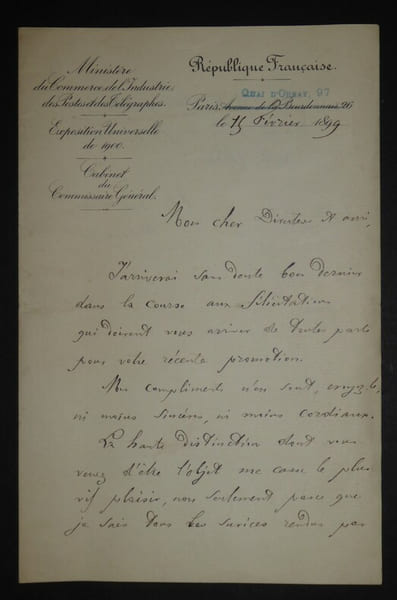 Ministère
du Commerce, de l'Industrie,
des Postes et des Télégraphes.
Exposition Universelle
de 1900.
Cabinet
du
Commissaire Général.
République Française.
QUAI D'ORSAY, 97
Paris, Avenue de la Bourdonnais 26
le 15 Février 1899
Mon cher Directeur et ami,
J'arriverai sans doute bon dernier
dans la course aux félicitations
qui doivent vous arriver de toutes parts
pour votre récente promotion.
Mes compliments n'en sont, croyez-le,
ni moins sincères, ni moins cordiaux.
La haute distinction dont vous
venez d'être l'objet me cause le plus
vif plaisir, non seulement parce que
je sais tous les services rendus par